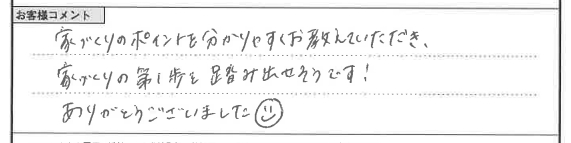 お客様コメント
家づくりのポイントを分かりやすくお教えていただき、
家づくりの第1歩を踏み出せそうです!
ありがとうございました☺